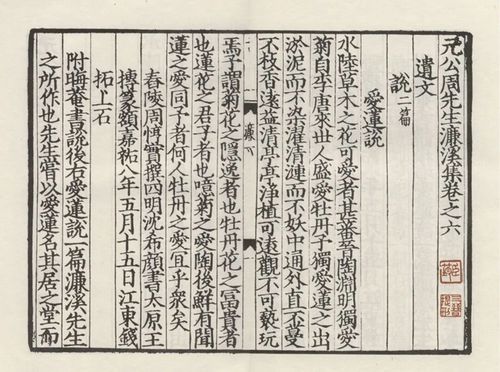 元公周先生濂溪集卷之六
遺文
說二篇
愛蓮說
水陸草木之花可愛者甚蕃晉陶淵明獨愛
菊自李唐來世人盛愛牡丹予獨愛蓮之出
淤泥而不染濯清漣而不妖中通外直不蔓
不枝香遠益清亭亭净植可遠觀不可褻玩
焉予謂菊花之隱逸者也牡丹花之富貴者
也蓮花之君子者也噫菊之愛陶後鮮有聞
蓮之愛同予者何人牡丹之愛宜乎衆矣
舂陵周惇實撰四明沈希顏書太原王
摶篆額嘉祐八年五月十五日江東錢
拓上石
附晦庵書說後右愛蓮說一篇濂溪先生
之所作也先生嘗以愛蓮名其居之堂而